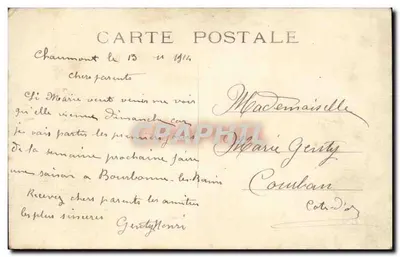 CARTE POSTALE
Chaumont le 13 1914
chers parents
Si Marie veut venir me voir
qu'elle vienne dimanche car
je vais partir les premiers
de la semaine prochaine faire
une saison a Bourbonne-les-Bains
Recevez chers parents les amitiés
les plus sincères
Genty Henri
Mademoiselle
Marie Genty
Courban
Cote d'or